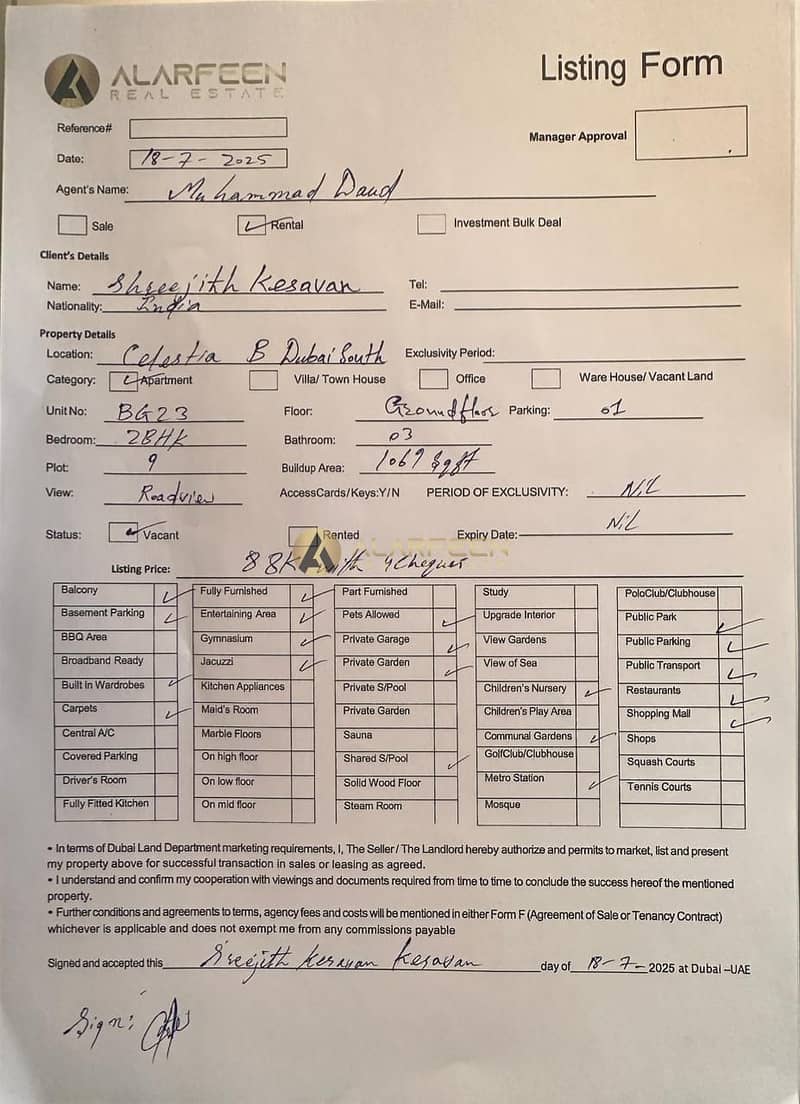 ALARFEEN
REAL ESTATE
Listing Form
Reference#
Manager Approval
Date: 18-7-2025
Agent's Name: Muhammad Daud
Sale Rental Investment Bulk Deal
Client's Details
Name: Shreejith Kesavan Tel:
Nationality: India E-Mail:
Property Details
Location: Celestia B Dubai South Exclusivity Period:
Category: Apartment Villa/ Town House Office Ware House/ Vacant Land
Unit No: BG23 Floor: Groundfloor Parking: 01
Bedroom: 2BHK Bathroom: 03
Plot: 9 Buildup Area: 1069 Sqft
View: Roadview AccessCards/Keys:Y/N PERIOD OF EXCLUSIVITY: NiL
Status: Vacant Rented Expiry Date: NiL
ALARFEEN
Listing Price: 88K with 4 Cheques
Balcony Fully Furnished Part Furnished Study PoloClub/Clubhouse
Basement Parking Entertaining Area Pets Allowed Upgrade Interior Public Park
BBQ Area Gymnasium Private Garage View Gardens Public Parking
Broadband Ready Jacuzzi Private Garden View of Sea Public Transport
Built in Wardrobes Kitchen Appliances Private S/Pool Children's Nursery Restaurants
Carpets Maid's Room Private Garden Children's Play Area Shopping Mall
Central A/C Marble Floors Sauna Communal Gardens Shops
Covered Parking On high floor Shared S/Pool GolfClub/Clubhouse Squash Courts
Driver's Room On low floor Solid Wood Floor Metro Station Tennis Courts
Fully Fitted Kitchen On mid floor Steam Room Mosque
• In terms of Dubai Land Department marketing requirements, I, The Seller / The Landlord hereby authorize and permits to market, list and present
my property above for successful transaction in sales or leasing as agreed.
• I understand and confirm my cooperation with viewings and documents required from time to time to conclude the success hereof the mentioned
property.
• Further conditions and agreements to terms, agency fees and costs will be mentioned in either Form F (Agreement of Sale or Tenancy Contract)
whichever is applicable and does not exempt me from any commissions payable
Signed and accepted this Sreejith Kesavan Kesavan day of 18-7-2025 at Dubai –UAE
Sign: